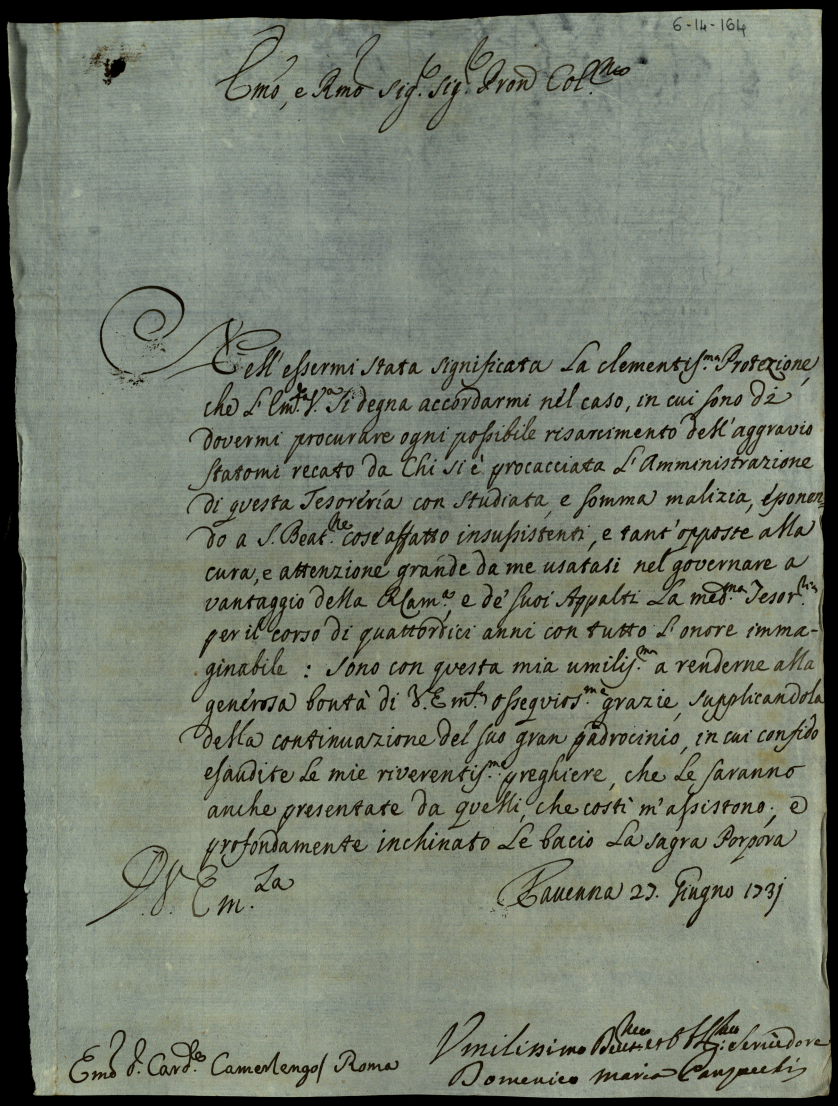 6-14-164
Emo, e Rmo Sig.r Sig.r Pron Col.mo
Nell'essermi stata significata La clementis.ma Protezione,
che L'Em.za V.ra si degna accordarmi nel caso, in cui sono di
dovermi procurare ogni possibile risarcimento dell'aggravio
statomi recato da Chi si è procacciata L'Amministrazione
di questa Tesoreria con studiata, e somma malizia, esponen-
do a S. Beat.ne cose affatto insussistenti, e tant'opposte alla
cura, e attenzione grande da me usatasi nel governare a
vantaggio della R. Cam.a, e de' suoi Appalti La med.ma Tesor.ria
per il corso di quattordici anni con tutto L'onore imma-
ginabile : sono con questa mia umilis.ma a renderne alla
generosa bontà di V. Em.za ossequios.me grazie, supplicandola
della continuazione del suo gran padrocinio, in cui confido
esaudite Le mie riverentis.me preghiere, che Le saranno
anche presentate da quelli, che costì m'assistono; e
profondamente inchinato Le bacio La sagra Porpora
D. V. Em.za
Ravenna 27. Giugno 1731
Emo S.r Card.le Camerlengo / Roma
Umilissimo Devt.mo et Obblig.mo Servidore
Domenico Maria